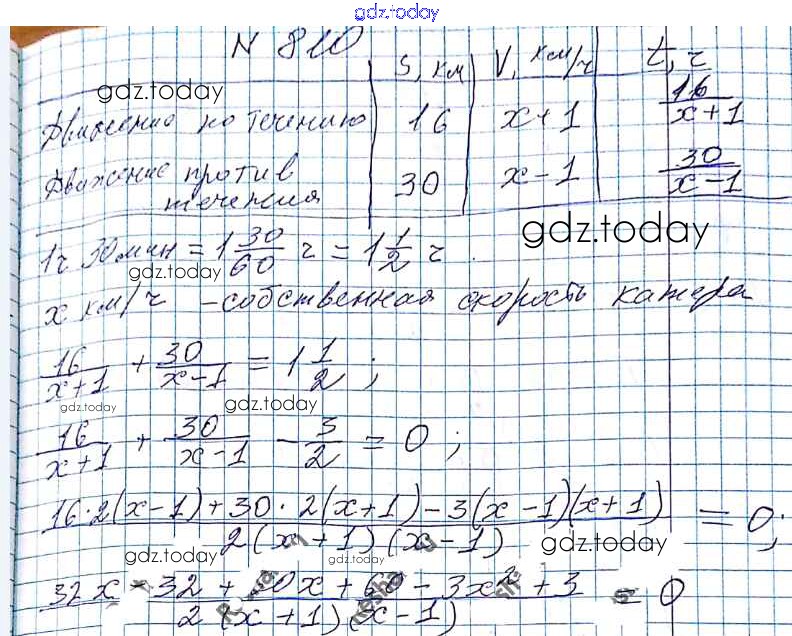 gdz.today
N 810
S, км V, км/ч t, ч
gdz.today
Движение по течению 16 x+1 16/(x+1)
Движение против течения 30 x-1 30/(x-1)
gdz.today
1ч 30мин = 1 30/60 ч = 1 1/2 ч
gdz.today
x км/ч - собственная скорость катера
16/(x+1) + 30/(x-1) = 1 1/2 ;
gdz.today
gdz.today
16/(x+1) + 30/(x-1) - 3/2 = 0 ;
(16·2(x-1)+30·2(x+1)-3(x-1)(x+1))/(2(x+1)(x-1)) = 0;
gdz.today
gdz.today
gdz.today
(32x-32+60x+60-3x²+3)/(2(x+1)(x-1)) = 0